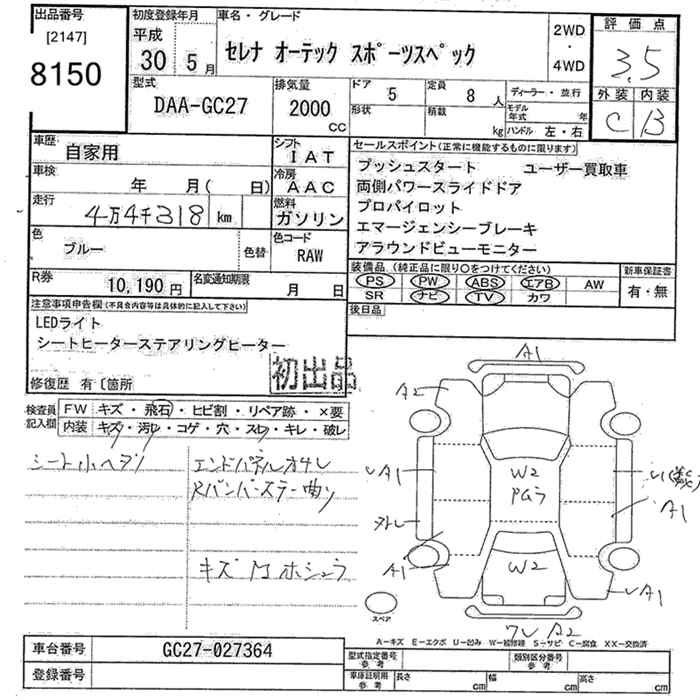 出品番号
[2147]
8150
初度登録年月
平成
30 5月
車名・グレード
セレナ オーテック スポーツスペック
2WD
・
4WD
評価点
3.5
外装 内装
C B
型式
DAA-GC27
排気量
2000
CC
ドア
5
定員
8 人
形状
積載
kg
ディーラー・並行
モデル年式 年
ハンドル 左・右
車歴
自家用
シフト
IAT
車検
年 月( 日)
冷房
AAC
走行
4万4千318 km
燃料
ガソリン
色
ブルー
色替
色コード
RAW
R券
10,190円
名変通知期限
月 日
セールスポイント(正常に機能するものに限ります)
プッシュスタート ユーザー買取車
両側パワースライドドア
プロパイロット
エマージェンシーブレーキ
アラウンドビューモニター
装備品(純正品に限り○をつけてください)
PS PW ABS エアB AW
SR ナビ TV カワ
新車保証書
有・無
後日品
注意事項申告欄(不具合内容等は具体的に記入して下さい)
LEDライト
シートヒーターステアリングヒーター
初出品
修復歴 有〔箇所
検査員
記入欄
FW キズ・飛石・ヒビ割・リペア跡・×要
内装 キズ・汚レ・コゲ・穴・スレ・キレ・破レ
シート小ヘタリ
エンドパネルオサレ
Rバンパーステー曲り
キズ
A1
A2
A1
W2
A1
A1
W2
A1
A2
スペア
A−キズ E−エクボ U−凹み W−補修跡 S−サビ C−腐食 XX−交換済
車台番号
GC27-027364
登録番号
型式指定番号
参考
類別区分番号
参考
車庫証明用
参考
長さ cm
幅 cm
高さ cm